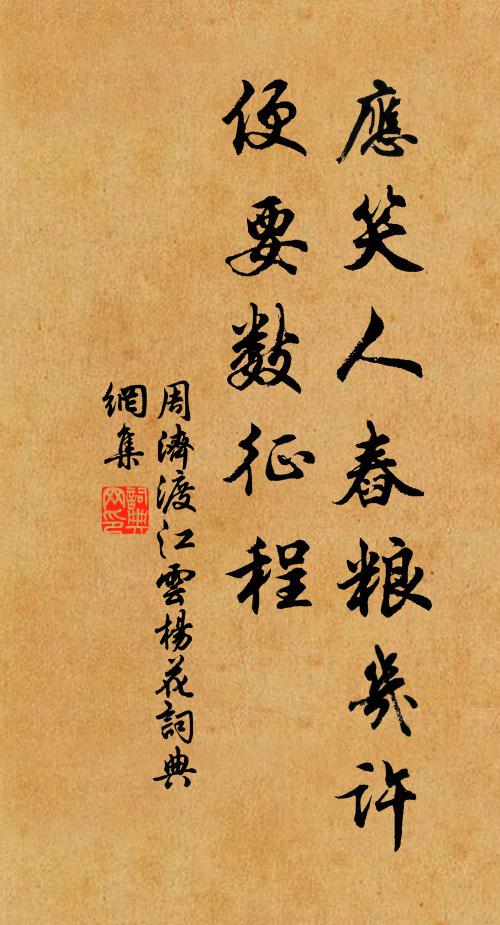 應笑人舂粮幾許
便要數征程
周濟渡江雲楊花詞典
網集
詞典
网印